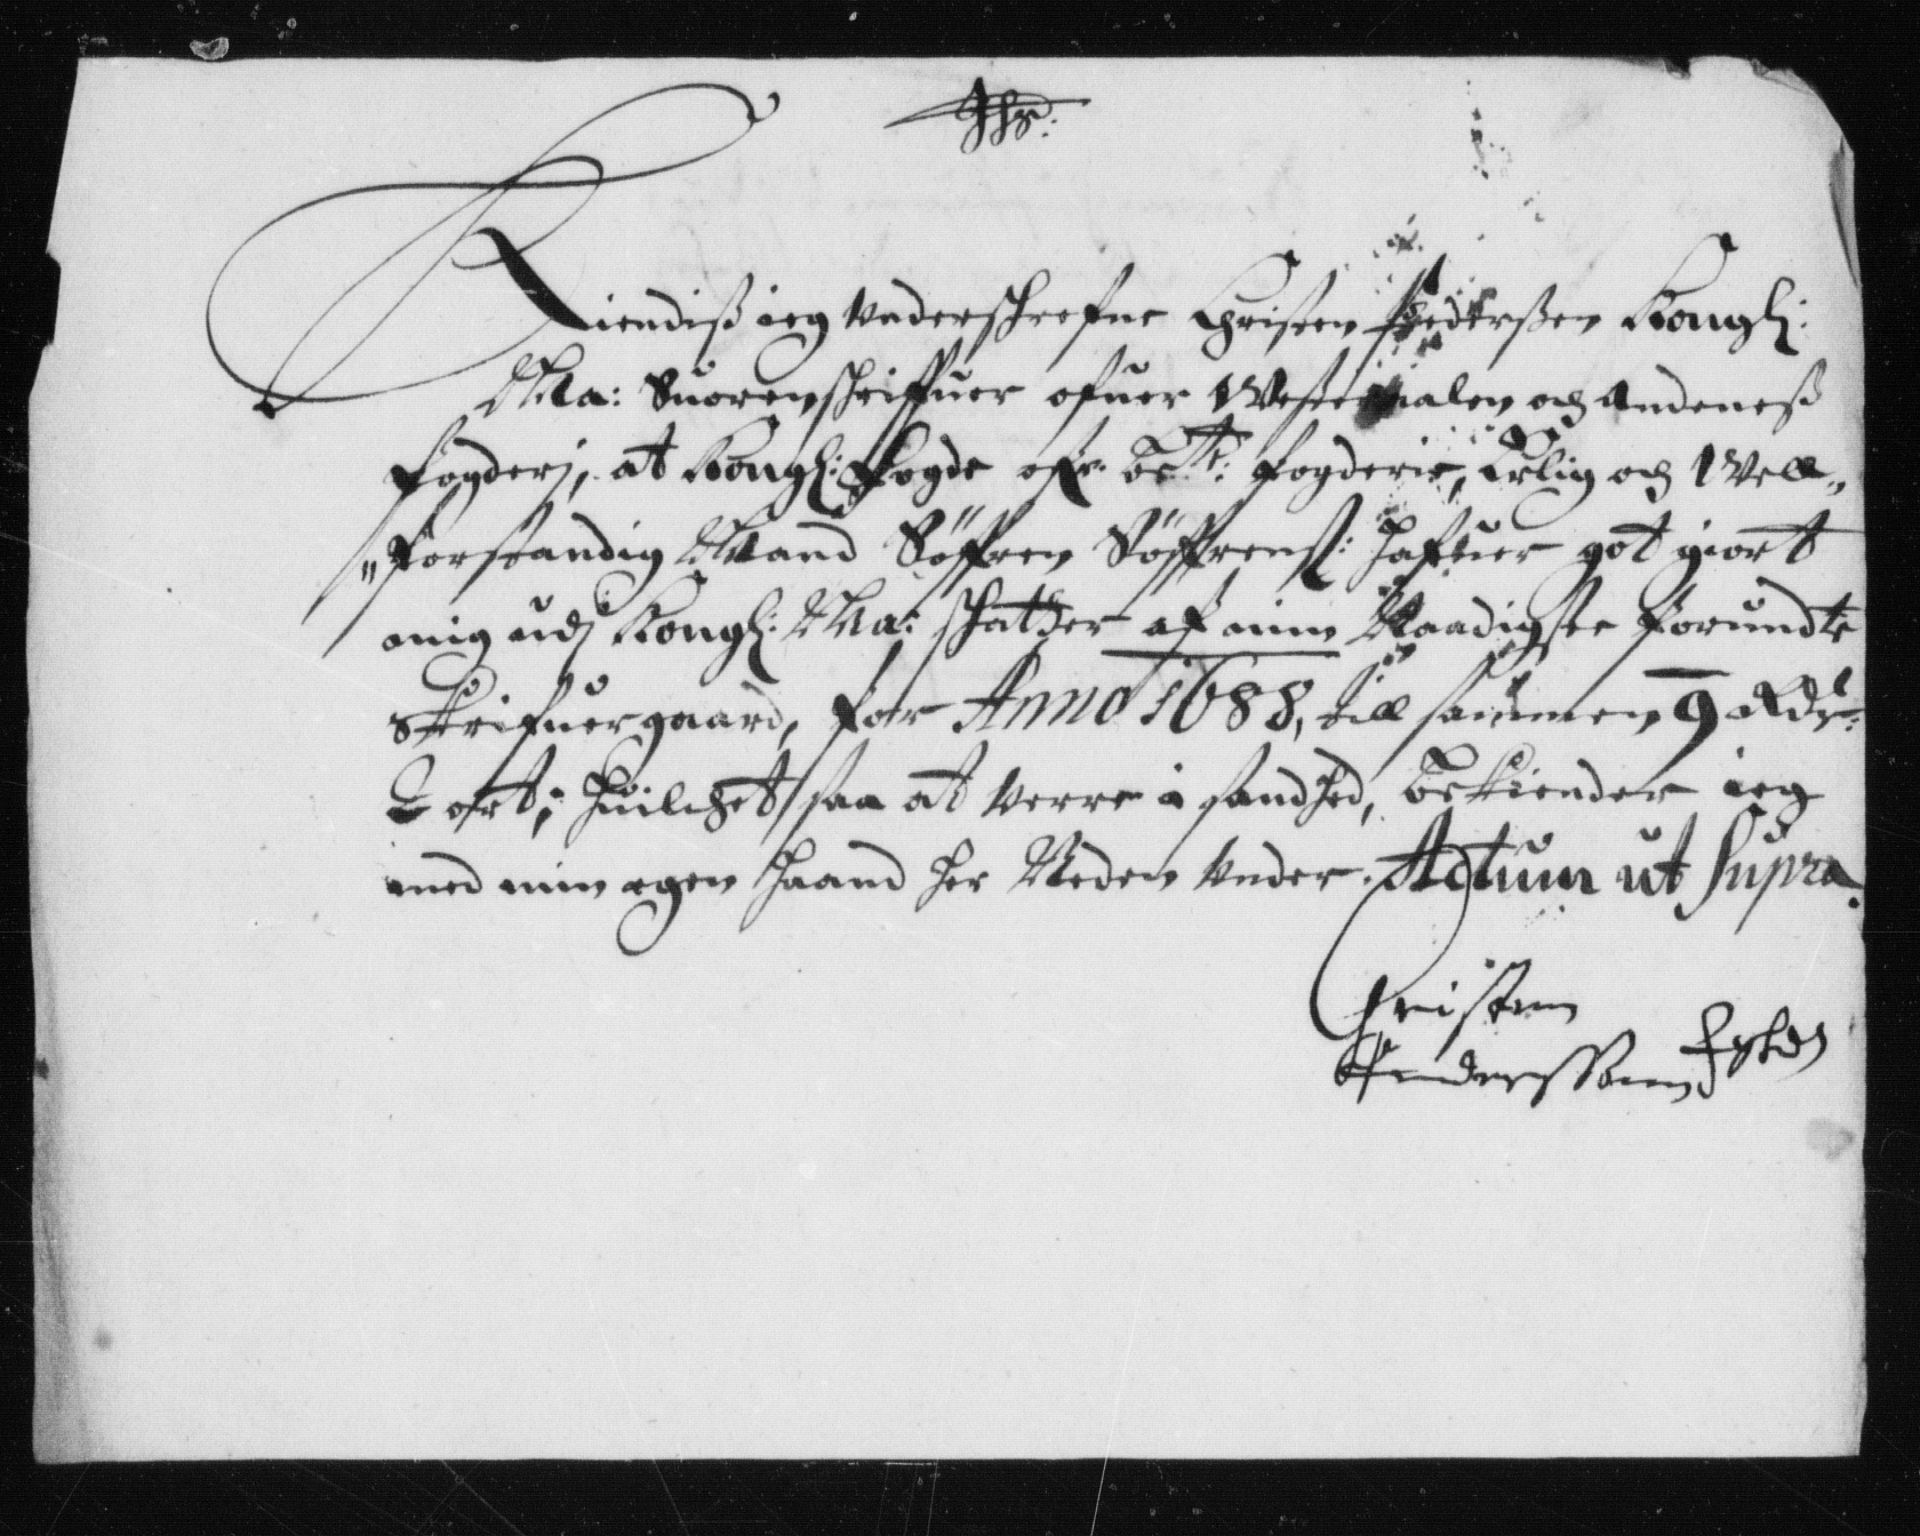 Jhs:
Kiendiß ieg Underschrefne Christen Pederßen Kongl:
Ma: Suorenschriffuer ofuer Westeraalen och Andeneß
fogderj, at Kongl: Fogde ofr. be:te: fogderie, Erlig och Well„
„forstandig Mand Søffren Søffrenß: hafuer got giort
mig udj Kongl: Ma: schatter af min Naadigste forundte
Skrifuergaard, for Anno 1688, till sammen 9 Rdr:
2 ort; Huilchet saa at Verre i sandhed, bekiender ieg
med min egen Haand her Neden Under. Actum ut Supra.
Christen
Pedersson